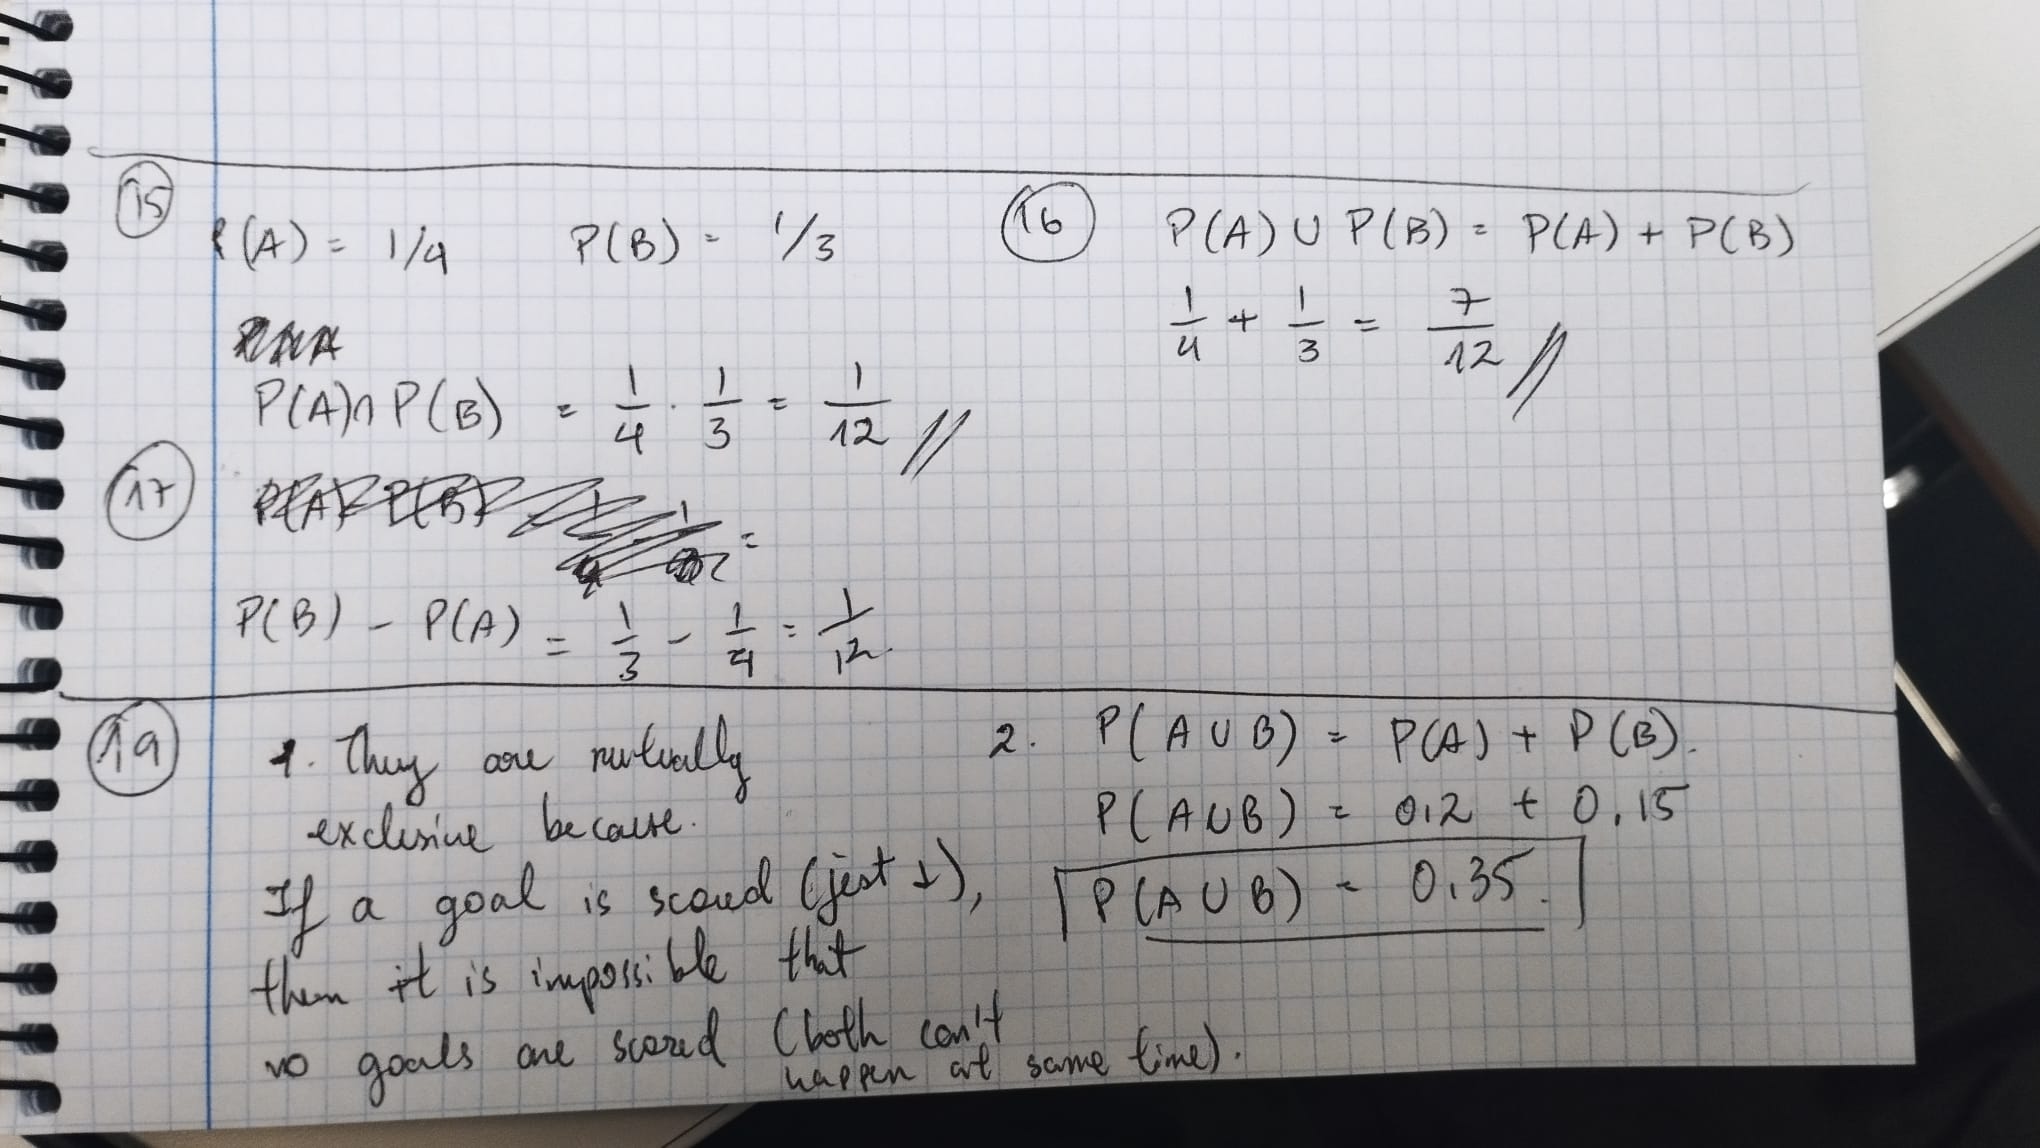 15
P(A) = 1/4 P(B) = 1/3
P(A)∩P(B) = 1/4 · 1/3 = 1/12 //
16
P(A) ∪ P(B) = P(A) + P(B)
1/4 + 1/3 = 7/12 //
17
=
P(B) - P(A) = 1/3 - 1/4 = 1/12.
19
1. They are mutually
exclusive because.
If a goal is scored (jest 1),
then it is impossible that
no goals are scored (both can't
happen at same time).
2. P(A∪B) = P(A) + P(B).
P(A∪B) = 0,2 + 0,15
P(A∪B) = 0,35.